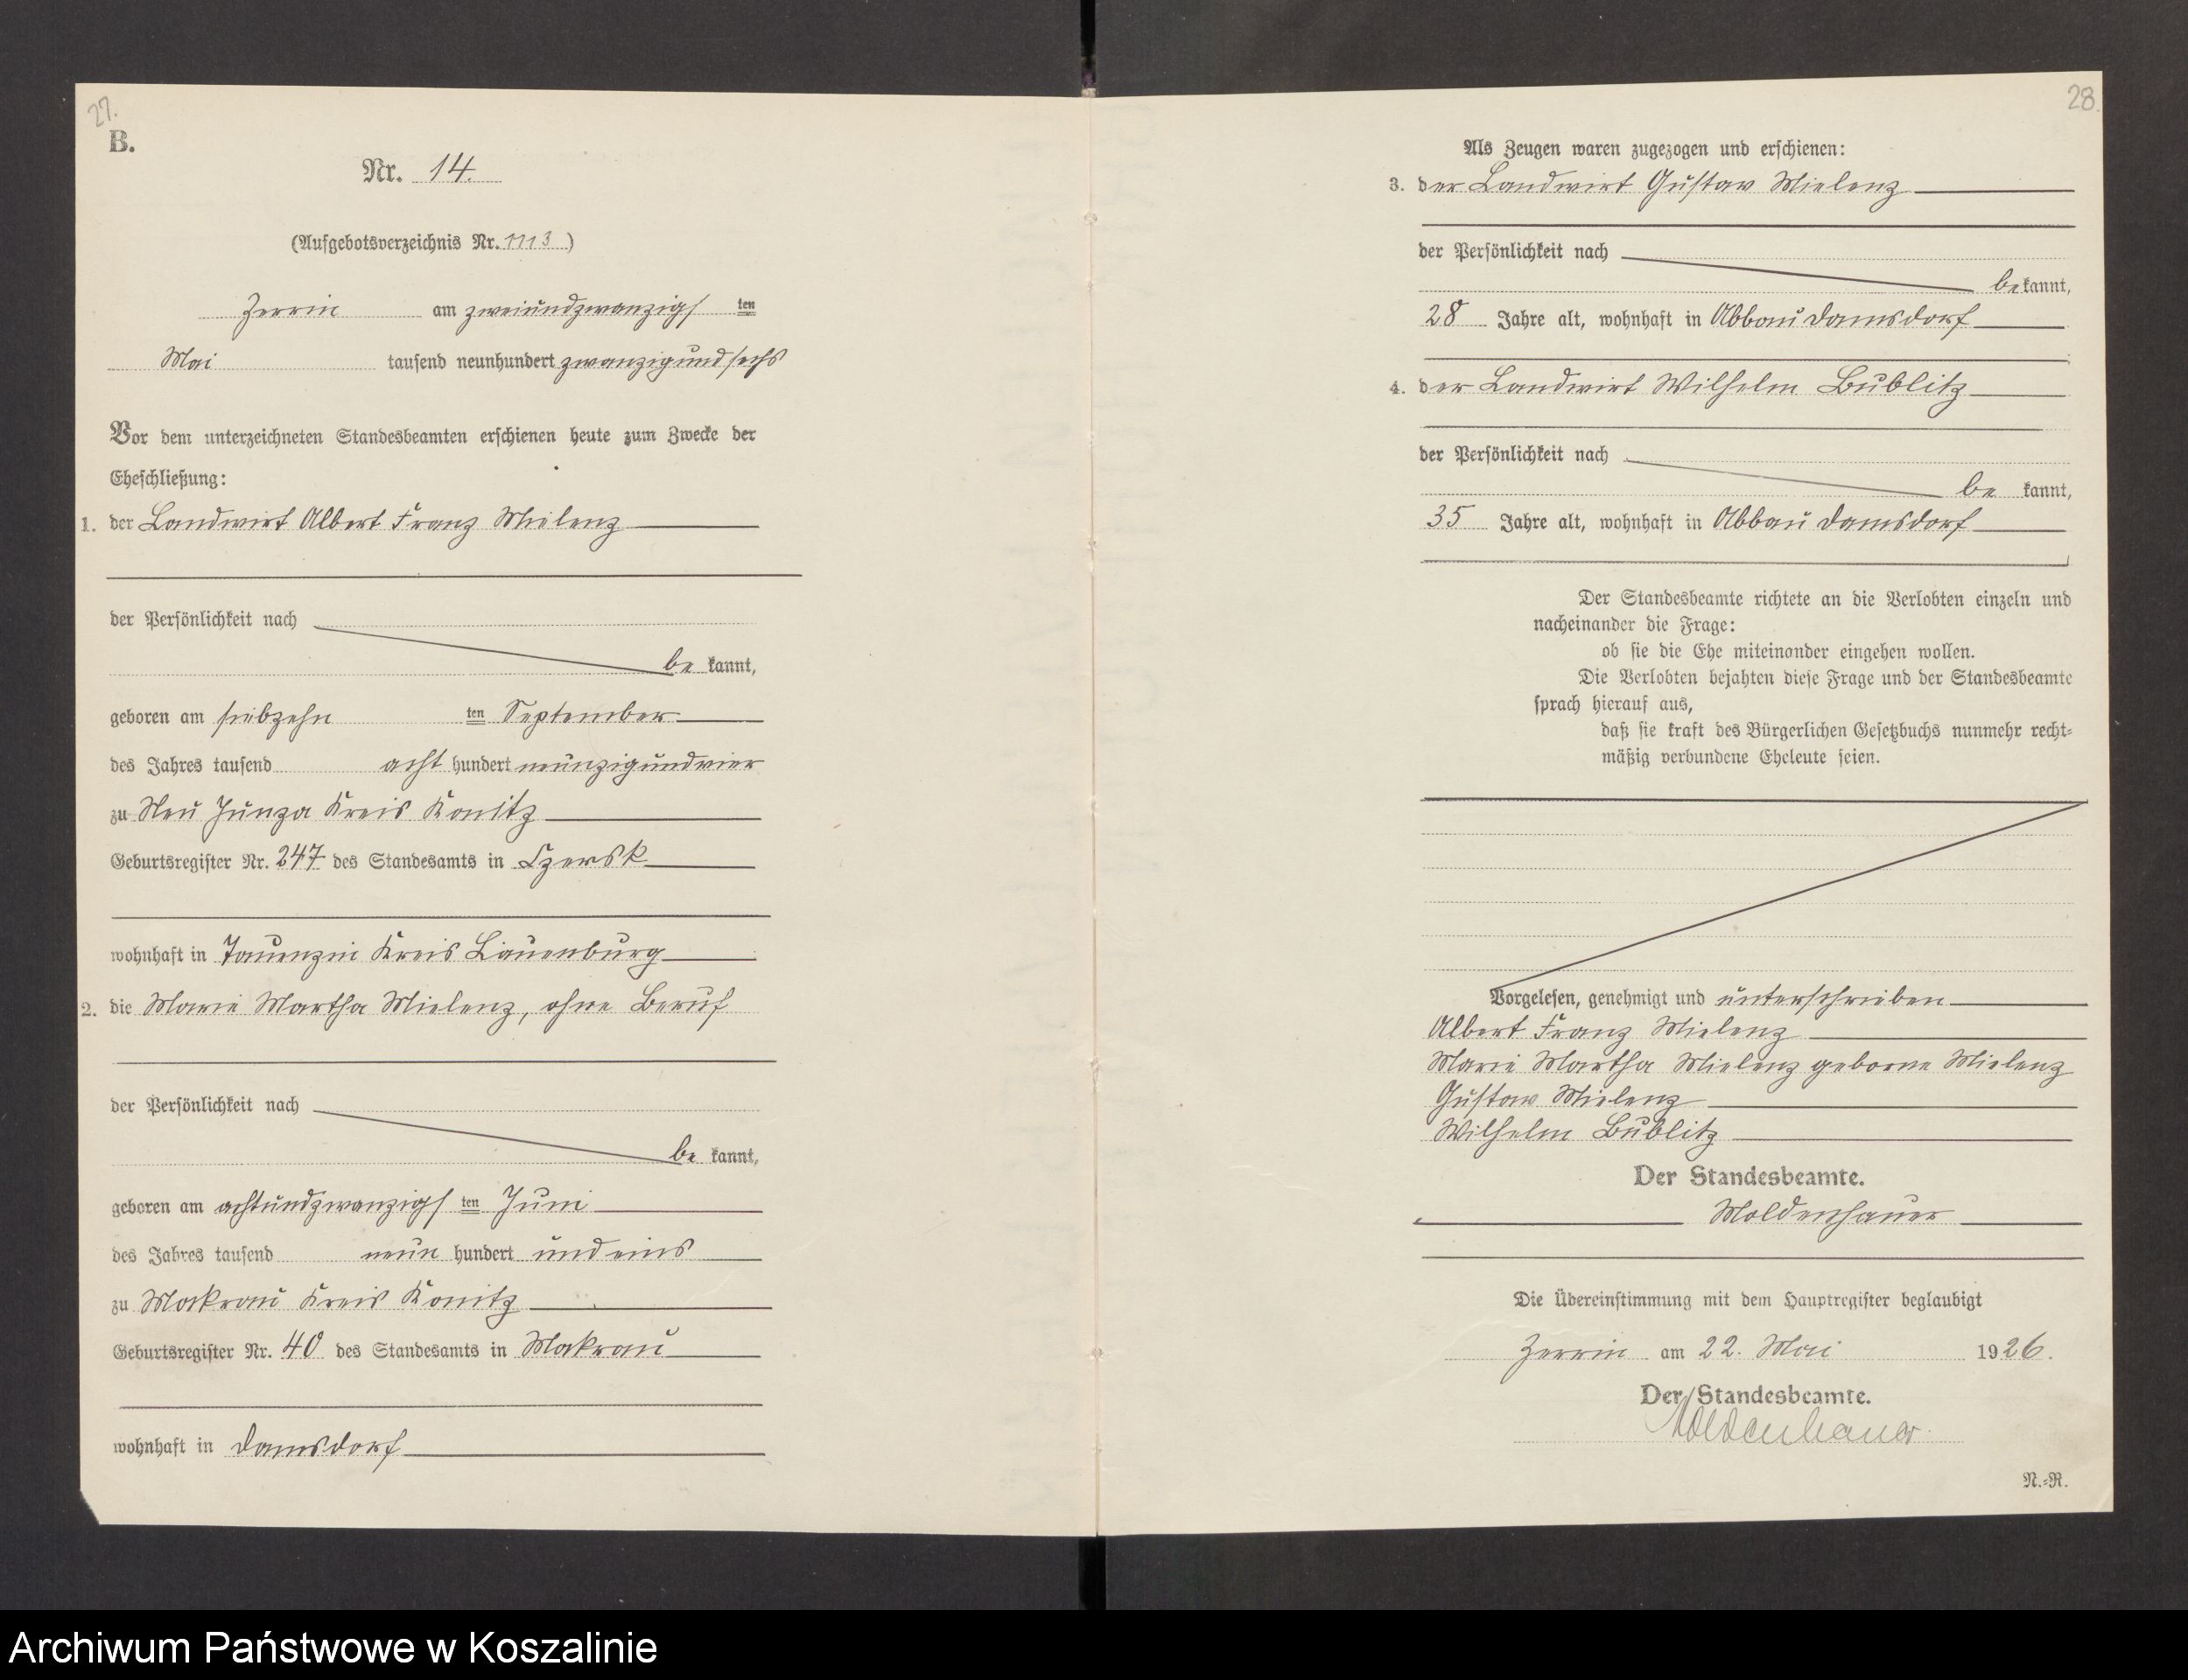 27.
B.
Nr. 14.
(Aufgebotsverzeichnis Nr. 1113)
Zerrin am zweiundzwanzigs ten
Mai tausend neunhundert zwanzigundsechs
Vor dem unterzeichneten Standesbeamten erschienen heute zum Zwecke der
Eheschließung:
1. der Landwirt Albert Franz Mielenz
der Persönlichkeit nach
be kannt,
geboren am siebzehn ten September
des Jahres tausend acht hundert neunzigundvier
zu Neu Kreis Konitz
Geburtsregister Nr. 247 des Standesamts in Czersk
wohnhaft in Tauenzin Kreis Lauenburg
2. die Marie Martha Mielenz, ohne Beruf
der Persönlichkeit nach
be kannt,
geboren am achtundzwanzigs ten Juni
des Jahres tausend neun hundert undeins
zu Mokrau Kreis Konitz
Geburtsregister Nr. 40 des Standesamts in Mokrau
wohnhaft in Damsdorf
28.
Als Zeugen waren zugezogen und erschienen:
3. der Landwirt Gustav Mielenz
der Persönlichkeit nach
bekannt,
28 Jahre alt, wohnhaft in Abbau Damsdorf
4. der Landwirt Wilhelm Bublitz
der Persönlichkeit nach
be kannt,
35 Jahre alt, wohnhaft in Abbau Damsdorf
Der Standesbeamte richtete an die Verlobten einzeln und
nacheinander die Frage:
ob sie die Ehe miteinander eingehen wollen.
Die Verlobten bejahten diese Frage und der Standesbeamte
sprach hierauf aus,
daß sie kraft des Bürgerlichen Gesetzbuchs nunmehr recht-
mäßig verbundene Eheleute seien.
Vorgelesen, genehmigt und unterschrieben
Albert Franz Mielenz
Marie Martha Mielenz geborne Mielenz
Gustav Mielenz
Wilhelm Bublitz
Der Standesbeamte.
Moldenhauer
Die Übereinstimmung mit dem Hauptregister beglaubigt
Zerrin am 22. Mai 1926.
Der Standesbeamte.
Moldenhauer
N.-R.
Archiwum Państwowe w Koszalinie